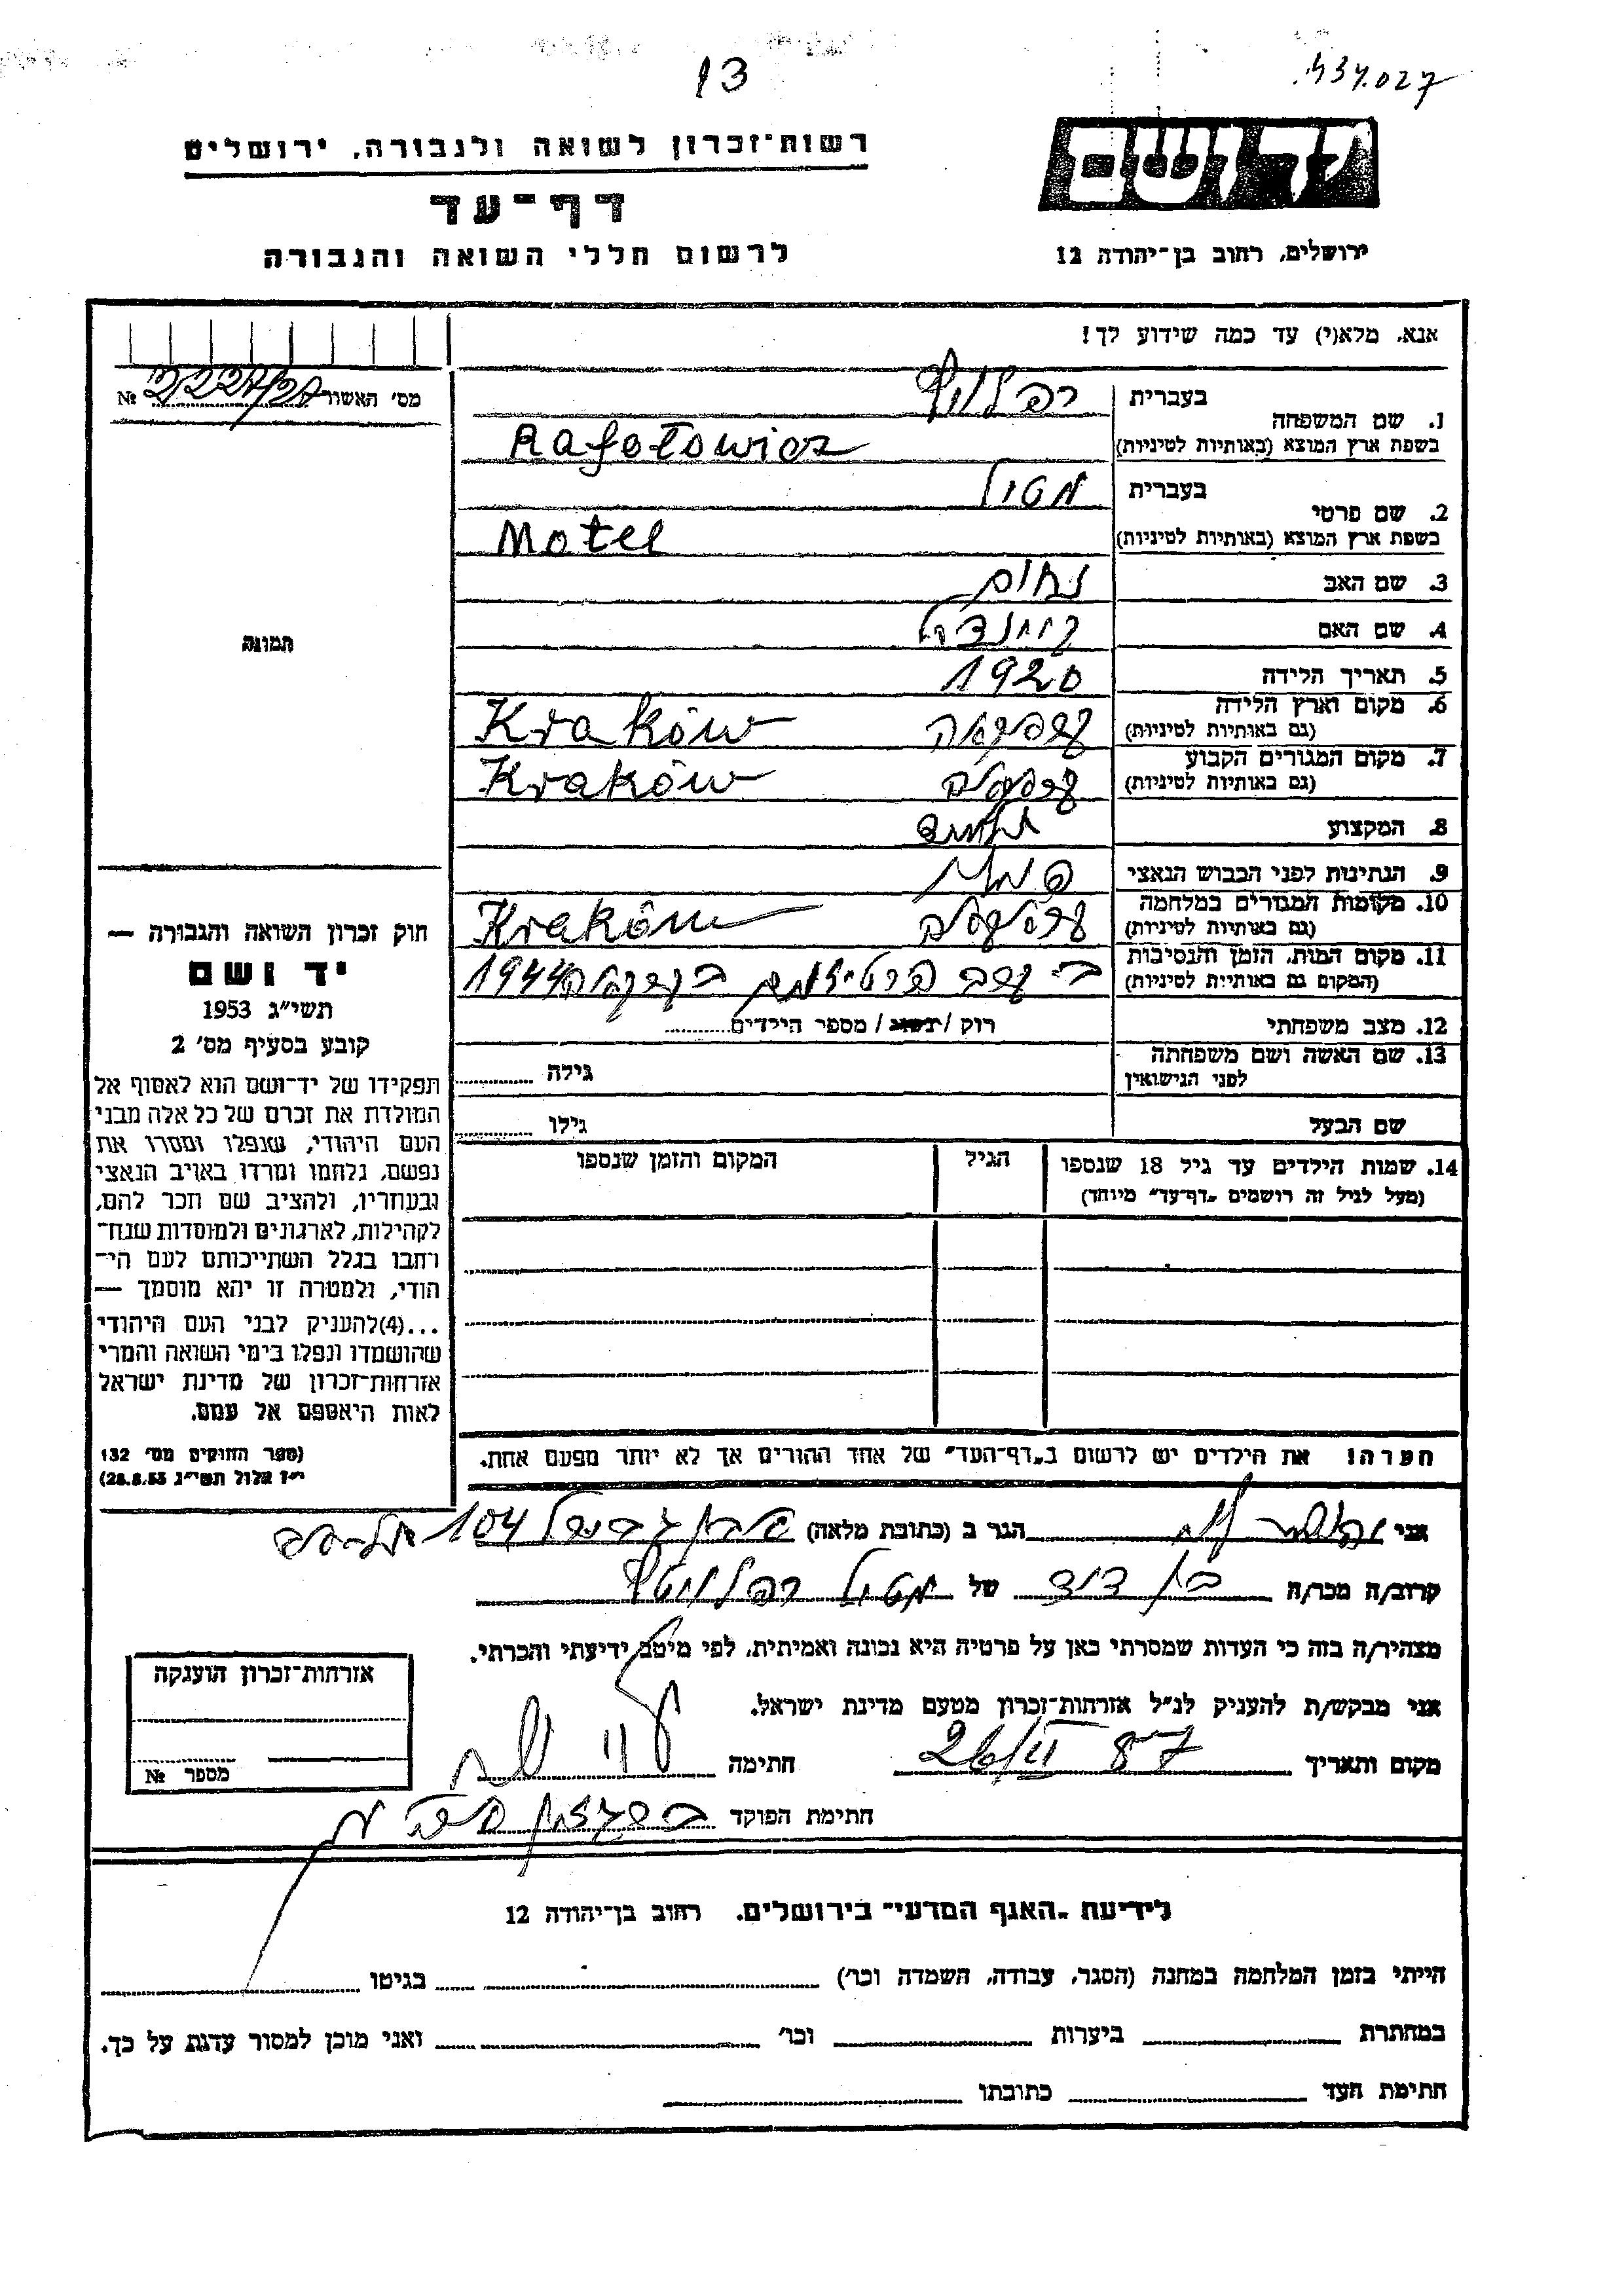 13
רשות־זכרון לשואה ולגבורה, ירושלים
דף־עד
לרשום חללי השואה והגבורה
יד ושם
ירושלים, רחוב בן־יהודה 12
אנא, מלא(י) עד כמה שידוע לך!
מס׳ האשור №
1. שם המשפחה
בעברית
בשפת ארץ המוצא (באותיות לטיניות) Rafałowicz
2. שם פרטי
בעברית מטול
בשפת ארץ המוצא (באותיות לטיניות) Motel
3. שם האב נחום
4. שם האם
5. תאריך הלידה 1920
6. מקום וארץ הלידה
(גם באותיות לטיניות) Kraków
7. מקום המגורים הקבוע
(גם באותיות לטיניות) Kraków
8. המקצוע
9. הנתינות לפני הכבוש הנאצי
10. מקומות המגורים במלחמה
(גם באותיות לטיניות) Kraków
11. מקום המות, הזמן והנסיבות
(המקום גם באותיות לטיניות) 1944
12. מצב משפחתי רוק / נשוי / מספר הילדים
13. שם האשה ושם משפחתה
לפני הנישואין
גילה
שם הבעל גילו
14. שמות הילדים עד גיל 18 שנספו
(מעל לגיל זה רושמים „דף־עד״ מיוחד)
הגיל
המקום והזמן שנספו
תמונה
חוק זכרון השואה והגבורה —
יד ושם
תשי״ג 1953
קובע בסעיף מס׳ 2
תפקידו של יד־ושם הוא לאסוף אל
המולדת את זכרם של כל אלה מבני
העם היהודי, שנפלו ומסרו את
נפשם, נלחמו ומרדו באויב הנאצי
ובעוזריו, ולהציב שם וזכר להם,
לקהילות, לארגונים ולמוסדות שנח־
רחבו בגלל השתייכותם לעם הי־
הודי, ולמטרה זו יהא מוסמך —
...(4)להעניק לבני העם היהודי
שהושמדו ונפלו בימי השואה והמרי
אזרחות־זכרון של מדינת ישראל
לאות היאספם אל עמם.
(ספר החוקים מס׳ 132
י״ז אלול תשי״ג 28.8.53)
חערה! את הילדים יש לרשום ב„דף־העד״ של אחד ההורים אך לא יותר מפעם אחת.
אני הגר ב (כתובת מלאה) 104
קרוב/ה מכר/ה בן דוד של מטול
מצהיר/ה בזה כי העדות שמסרתי כאן על פרטיה היא נכונה ואמיתית, לפי מיטב ידיעתי והכרתי.
אני מבקש/ת להעניק לנ״ל אזרחות־זכרון מטעם מדינת ישראל.
מקום ותאריך חתימה
חתימת הפוקד
אזרחות־זכרון הוענקה
מספר №
לידיעת „האגף המדעי״ בירושלים, רחוב בן־יהודה 12
הייתי בזמן המלחמה במחנה (הסגר, עבודה, השמדה וכו׳) בגיטו
במחתרת ביערות וכו׳ ואני מוכן למסור עדות על כך.
חתימת העד כתובתו